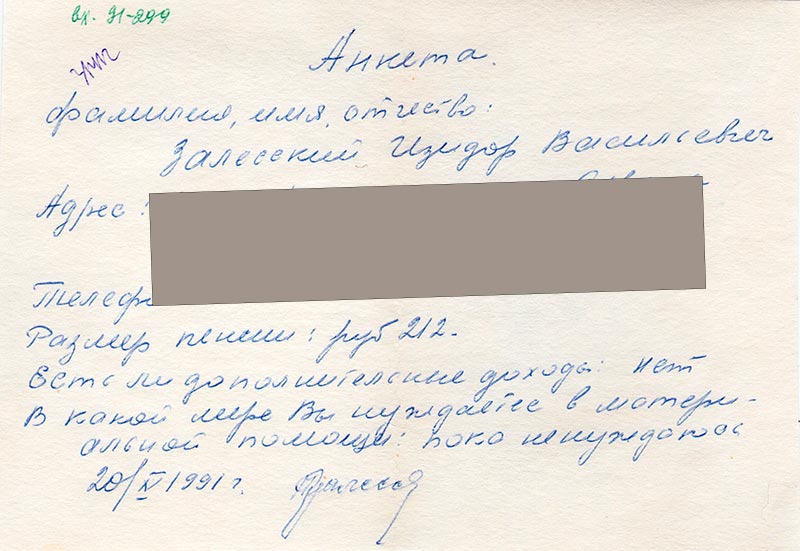 вх. 91-299
Анкета.
фамилия, имя, отчество:
Залесский Изидор Васильевич
Адрес:
Телефо
Размер пенсии: руб 212.
Есть ли дополнительные доходы: нет
В какой мере Вы нуждаетесь в матери-
альной помощи: пока ненуждаюсь
20/IV 1991 г.